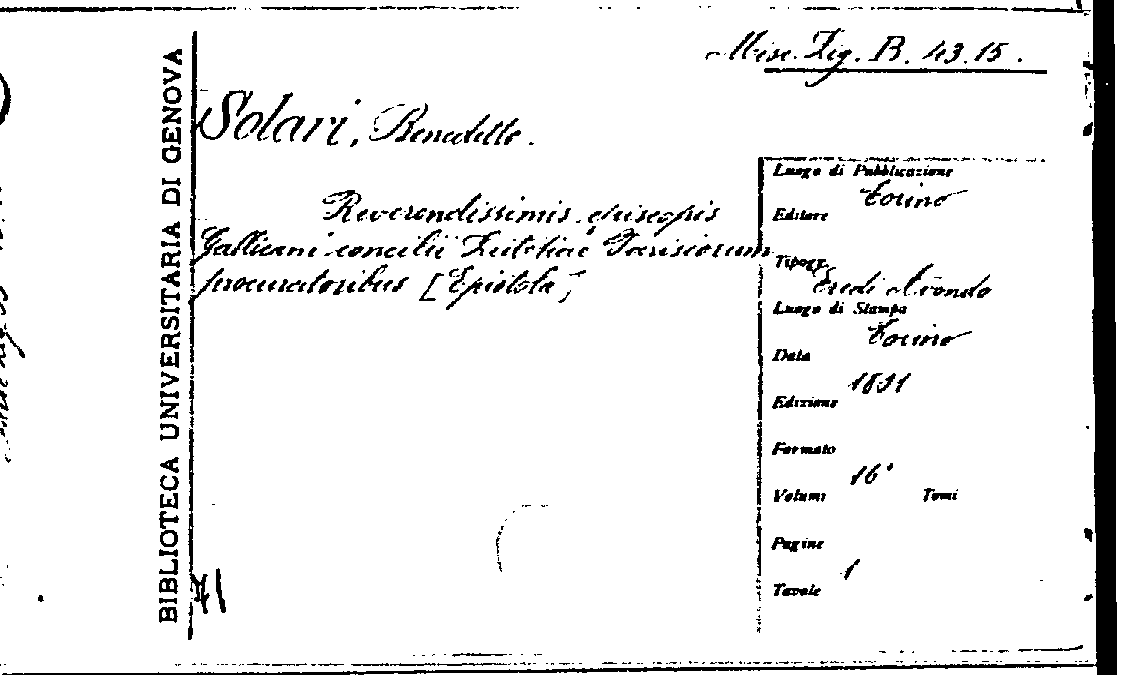 Misc. Lig. B. 43.15.
BIBLIOTECA UNIVERSITARIA DI GENOVA
Solari, Benedetto.
Reverendissimis episcopis
Gallicani concilii Lutetiae Parisiorum
procuratoribus [Epistola]
Luogo di Pubblicazione
Torino
Editore
Tipogr.
Eredi Avondo
Luogo di Stampa
Torino
Data
Edizione
Formato
16°
Volumi Tomi
Pagine
1
Tavole
71